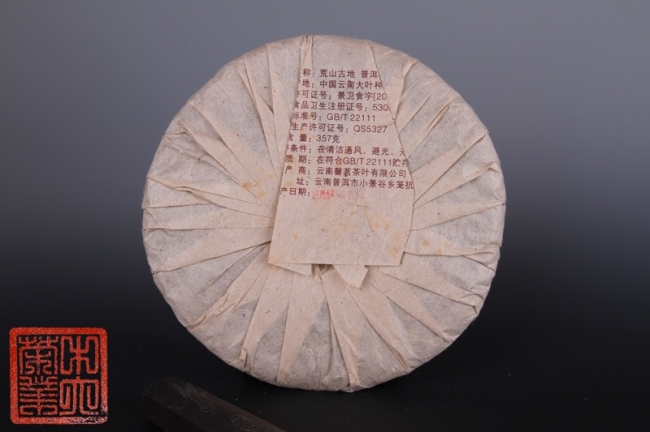 称：荒山古地 普洱
地：中国云南大叶种
许可证号：景卫食字[20
食品卫生注册证号：530
标准号：GB/T 22111
生产许可证号：QS5327
含 量：357克
存条件：在清洁通风、避光、无
质 期：在符合GB/T 22111贮存
产 商：云南馨茗茶叶有限公司
址：云南普洱市小景谷乡笼杭
产日期：